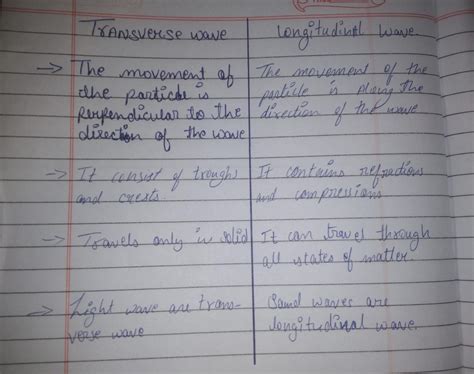 Transverse wave
Longitudinal wave
→ The movement of
the particle is
perpendicular to the
direction of the wave
The movement of the
particle is along the
direction of the wave
→ It consist of troughs
and crests.
It contains refractions
and compressions
→ Travels only in solid
It can travel through
all states of matter.
→ Light wave are trans-
verse wave
Sound waves are
longitudinal wave.